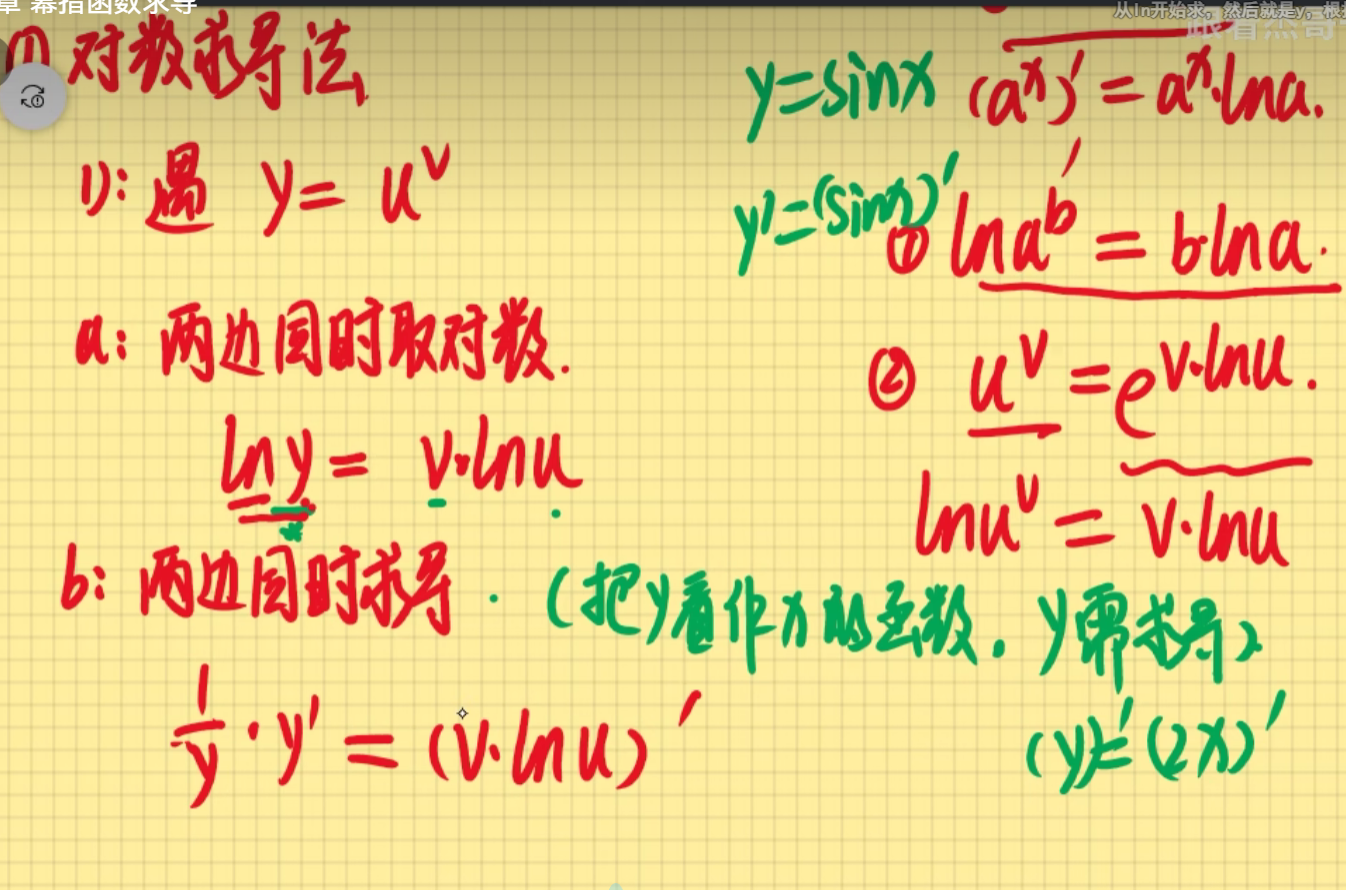 章 幂指函数求导
从ln开始求，然后就是y，根据
跟着杰哥
① 对数求导法.
1): 遇 y = u^v
a: 两边同时取对数.
ln y = v·ln u
b: 两边同时求导. (把y看作x的函数. y需求导)
1/y · y' = (v·ln u)'
y=sinx
(a^x)' = a^x·lna.
y'=(sinx)'
① lna^b = b·lna.
② u^v = e^{v·lnu}.
lnu^v = v·lnu
(y)'=(2x)'